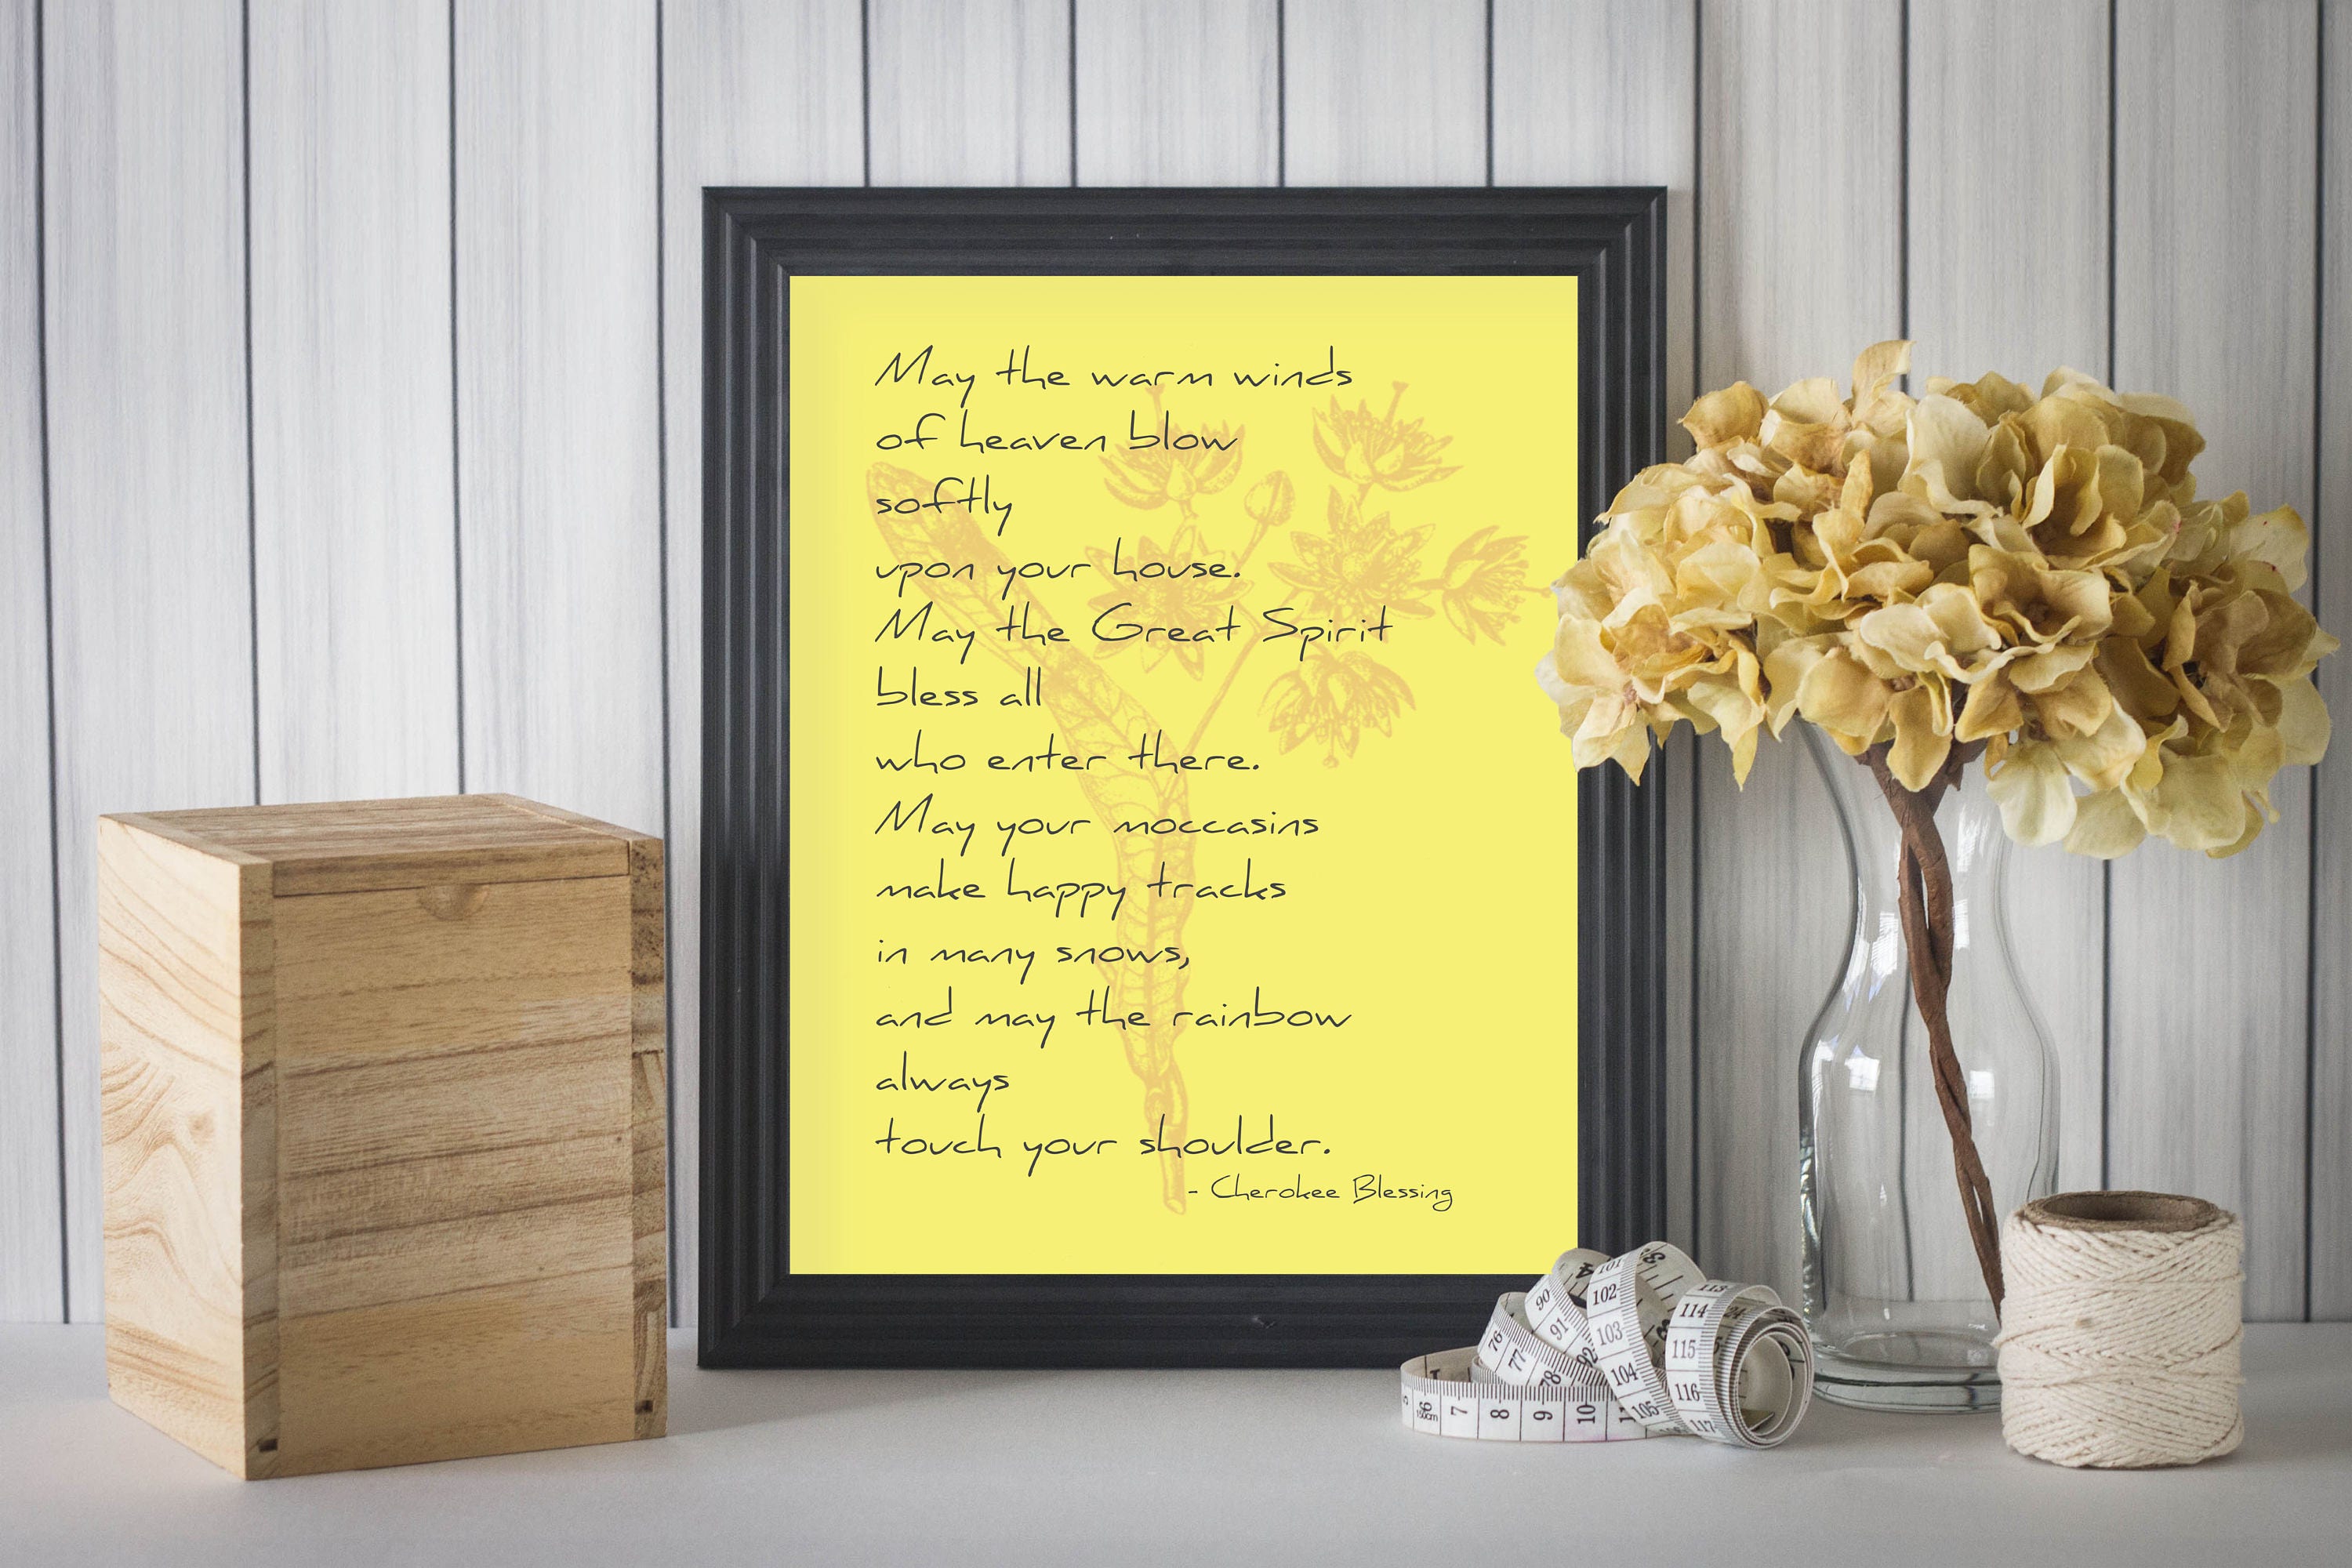 May the warm winds
of heaven blow
softly
upon your house.
May the Great Spirit
bless all
who enter there.
May your moccasins
make happy tracks
in many snows,
and may the rainbow
always
touch your shoulder.
- Cherokee Blessing
90
91
92
76
77
78
101
102
103
104
105
113
114
115
116
117
150cm
7
8
9
10